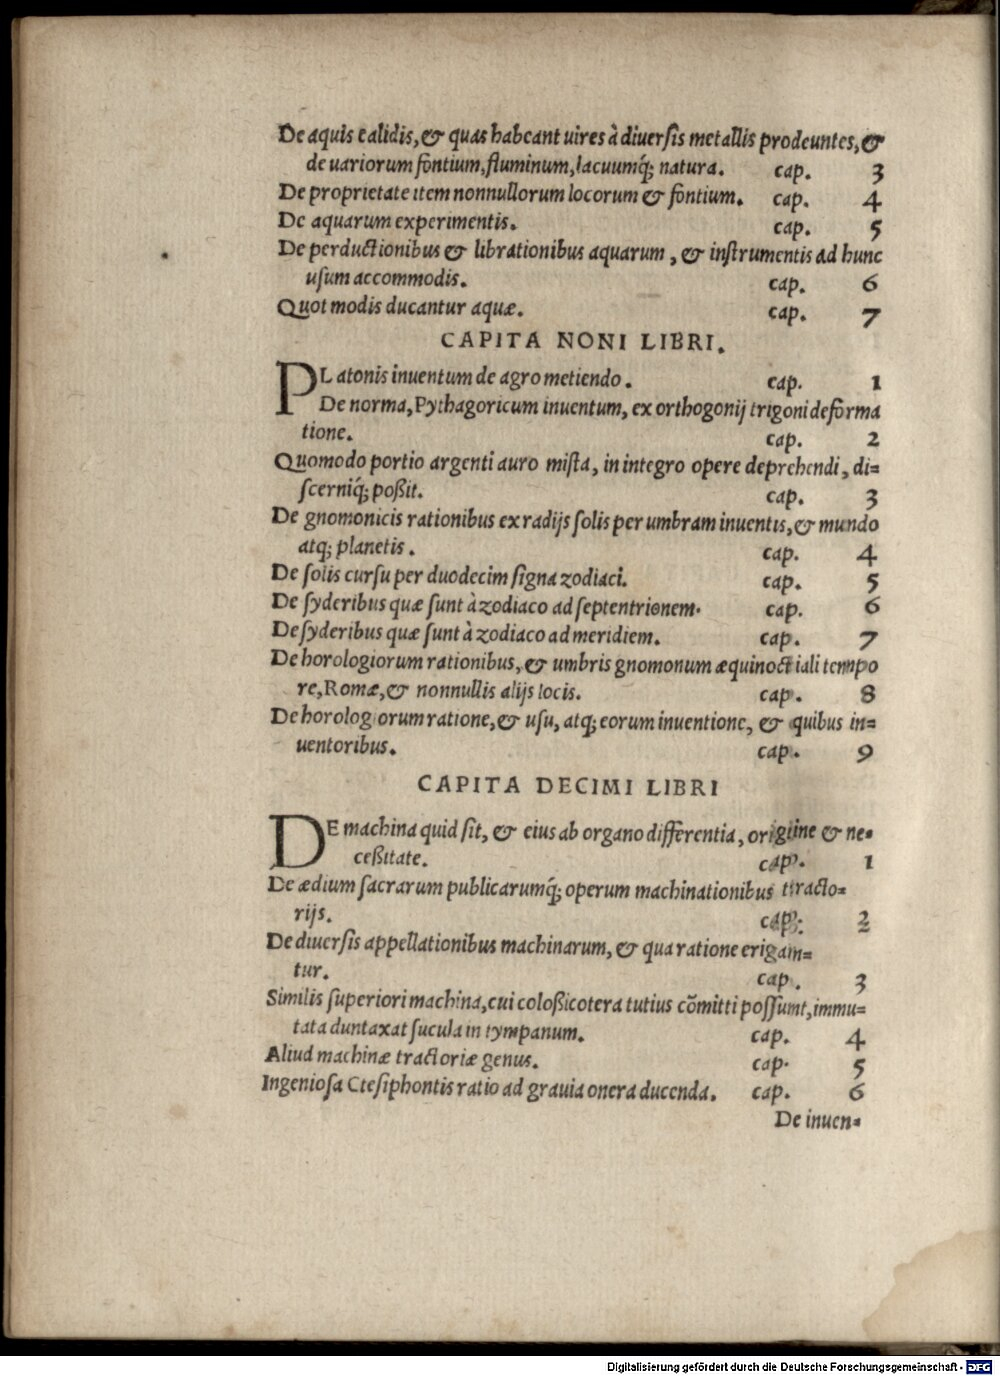 De aquis calidis, & quas habeant uires à diuersis metallis prodeuntes, &
de uariorum fontium, fluminum, lacuumq; natura. cap. 3
De proprietate item nonnullorum locorum & fontium. cap. 4
De aquarum experimentis. cap. 5
De perductionibus & librationibus aquarum, & instrumentis ad hunc
usum accommodis. cap. 6
Quot modis ducantur aquæ. cap. 7
CAPITA NONI LIBRI.
PLatonis inuentum de agro metiendo. cap. 1
De norma, Pythagoricum inuentum, ex orthogonij trigoni deforma
tione. cap. 2
Quomodo portio argenti auro mista, in integro opere deprehendi, di=
scerniq; poßit. cap. 3
De gnomonicis rationibus ex radijs solis per umbram inuentis, & mundo
atq; planetis. cap. 4
De solis cursu per duodecim signa zodiaci. cap. 5
De syderibus quæ sunt à zodiaco ad septentrionem. cap. 6
De syderibus quæ sunt à zodiaco ad meridiem. cap. 7
De horologiorum rationibus, & umbris gnomonum æquinoctiali tempo
re, Romæ, & nonnullis alijs locis. cap. 8
De horologiorum ratione, & usu, atq; eorum inuentione, & quibus in=
uentoribus. cap. 9
CAPITA DECIMI LIBRI
DE machina quid sit, & eius ab organo differentia, origiine & ne=
ceßitate. cap. 1
De ædium sacrarum publicarumq́; operum machinationibus tracto=
rijs. cap. 2
De diuersis appellationibus machinarum, & qua ratione erigan=
tur. cap. 3
Similis superiori machina, cui coloßicotera tutius cõmitti possunt, immu=
tata duntaxat sucula in tympanum. cap. 4
Aliud machinæ tractoriæ genus. cap. 5
Ingeniosa Ctesiphontis ratio ad grauia onera ducenda. cap. 6
De inuen=
Digitalisierung gefördert durch die Deutsche Forschungsgemeinschaft - DFG